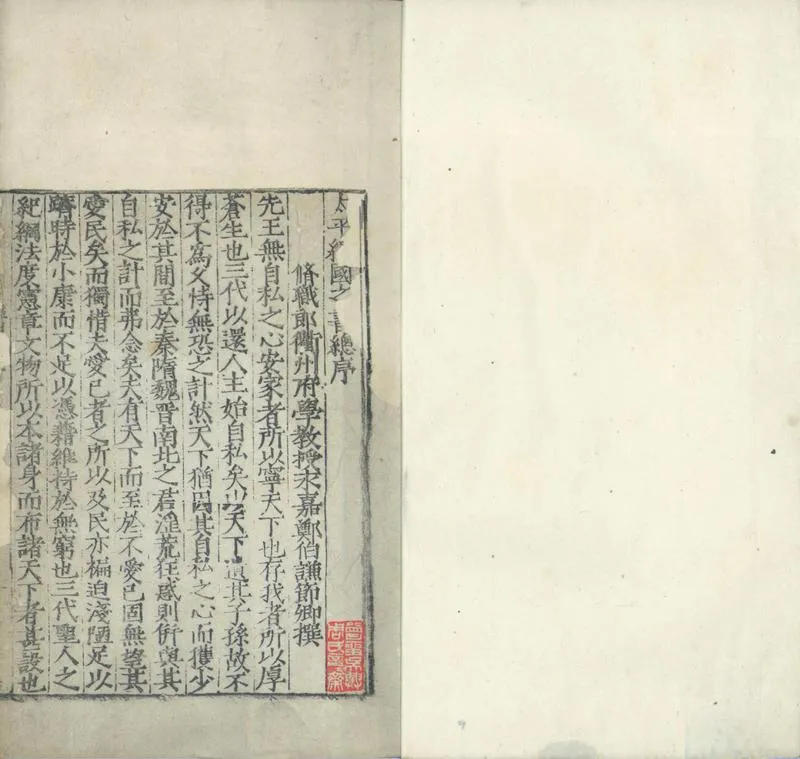 太平經國之書總序
脩職郎衢州府學教授永嘉鄭伯謙節卿撰
先王無自私之心安家者所以寧天下也存我者所以厚
蒼生也三代以還人主始自私矣以天下遺其子孫故不
得不爲久恃無恐之計然天下猶因其自私之心而獲少
安於其間至於秦隋魏晉南北之君滛荒狂惑則併與其
自私之計而弗念矣夫有天下而至於不愛已固無望其
愛民矣而獨惜夫愛已者之所以及民亦褊迫淺陋足以
躋時於小康而不足以憑藉維持於無窮也三代聖人之
紀綱法度憲章文物所以本諸身而布諸天下者甚設也